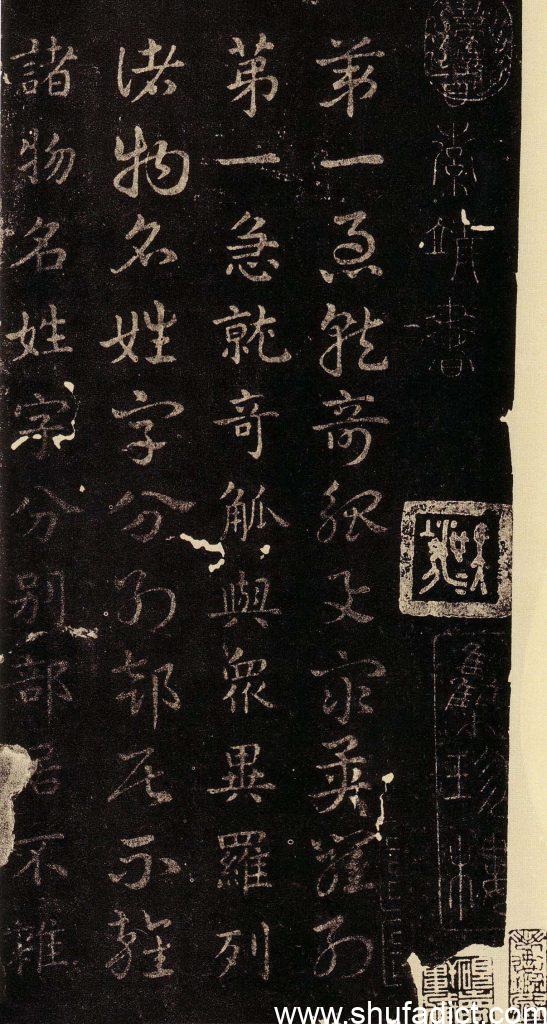 索靖書
第一急就奇觚與衆異羅列
第一急就奇觚與衆異羅列
諸物名姓字分别部居不雜
諸物名姓字分别部居不雜
www.shufadict.com